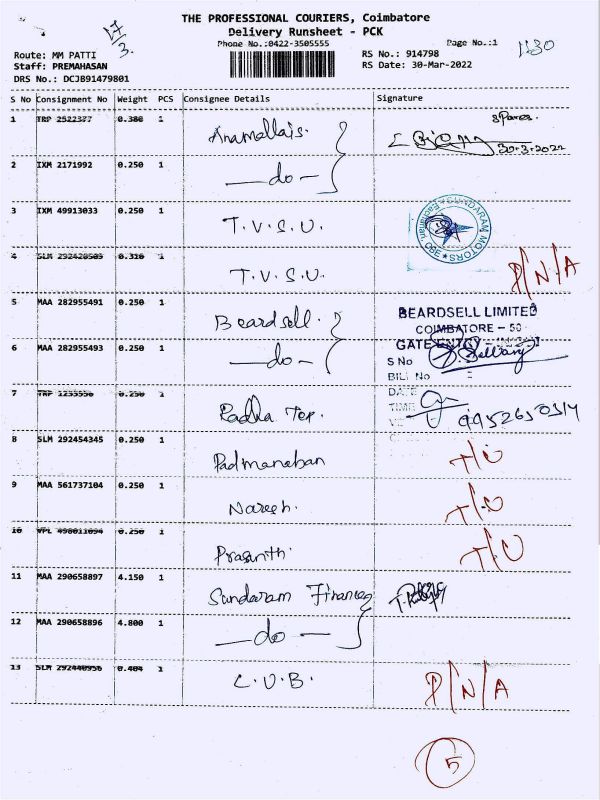 THE PROFESSIONAL COURIERS, Coimbatore
Delivery Runsheet - PCK
Phone No.:0422-3505555
Page No.:1
1130
17/3.
Route: MM PATTI
Staff: PREMAHASAN
DRS No.: DCJB91479801
RS No.: 914798
RS Date: 30-Mar-2022
S No Consignment No Weight PCS Consignee Details Signature
1 TRP 2522377 0.380 1 Anamallais.
30-3-2022
2 IXM 2171992 0.250 1 —do—
3 IXM 49913033 0.250 1 T.V.S.U.
SUNDARAM MOTORS CBE
4 SLM 292420503 0.320 1 T.V.S.U. P/N/A
5 MAA 282955491 0.250 1 Beardsell.
BEARDSELL LIMITED
COIMBATORE - 50
GATE ENTRY
6 MAA 282955493 0.250 1 —do—
S No
BILL No
DATE
TIME
7 TRP 1255550 0.250 1 Radha Tex.
8 SLM 292454345 0.250 1 Padmanaban
9 MAA 561737104 0.250 1 Naresh.
10 VPL 498011094 0.250 1 Prasanth.
11 MAA 290658897 4.150 1 Sundaram Finance
12 MAA 290658896 4.800 1 —do—
13 SLM 292440956 0.404 1 C.U.B. P/N/A
5